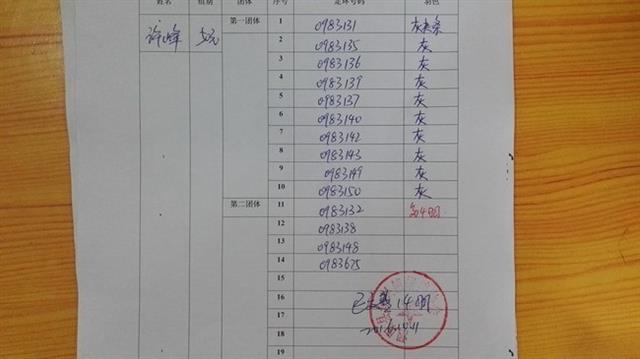 姓名 组别 团体 序号 足环号码 羽色
许峰 50元 第一团体 1 0983131 灰
2 0983135 灰
3 0983136 灰
4 0983139 灰
5 0983137 灰
6 0983140 灰
7 0983142 灰
8 0983143 灰
9 0983149 灰
10 0983150 灰
第二团体 11 0983132
12 0983138
13 0983148
14 0983675
15
16
17
18
19